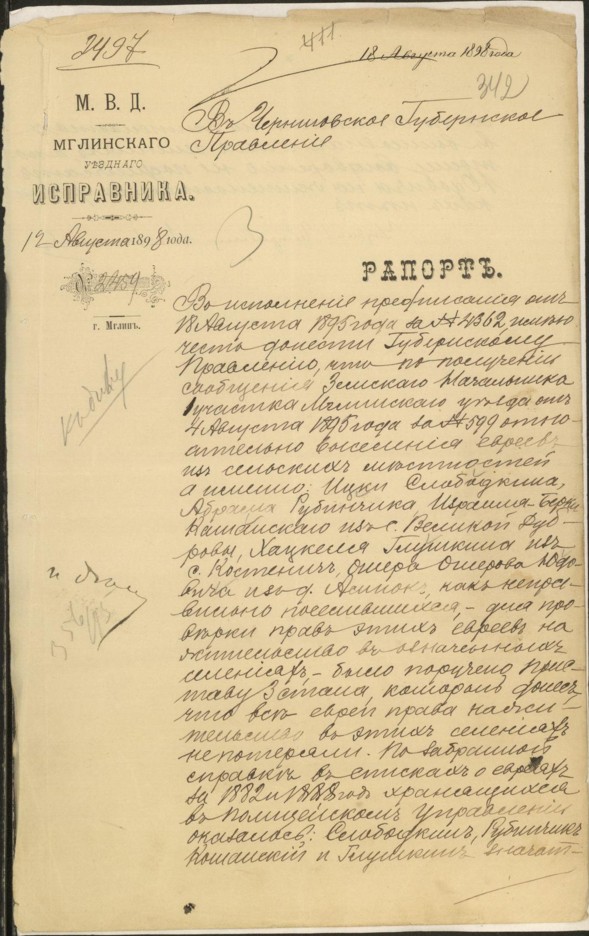 2497
411
18 Августа 1898 года
342
М. В. Д.
МГЛИНСКАГО
УѢЗДНАГО
ИСПРАВНИКА.
12 Августа 1898 года.
№ 2459
г. Мглинъ.
Въ Черниговское Губернское
Правленіе
РАПОРТЪ.
Во исполненіе предписанія отъ
18 Августа 1895 года за № 4362 имѣю
честь донести Губернскому
Правленію, что по полученіи
сообщенія Земскаго Начальника
1 участка Мглинскаго уѣзда отъ
4 Августа 1895 года за № 599 относ-
ительно выселенія евреевъ
изъ сельскихъ мѣстностей
а именно: Ицки Слободкина,
Абрама Рубинчика, Израиля-Берки
Кошанскаго изъ с. Великой Дуб-
ровы, Хацкеля Глушкина изъ
с. Костеничъ, Ошера Ошерова Юдо-
вича изъ д. какъ непра-
вильно поселившихся, - для про-
вѣрки правъ этихъ евреевъ на
жительство въ означенныхъ
селеніяхъ, - было поручено Прис-
таву 3 стана, который донесъ,
что всѣ евреи права на жи-
тельство въ этихъ селеніяхъ
не потеряли. По забранной
справкѣ въ спискахъ о евреяхъ
за 1882 и 1888 годъ хранящихся
въ Полицейскомъ Управленіи
оказалось: Слободкинъ, Рубинчикъ
Кошанскій и Глушкинъ значат-